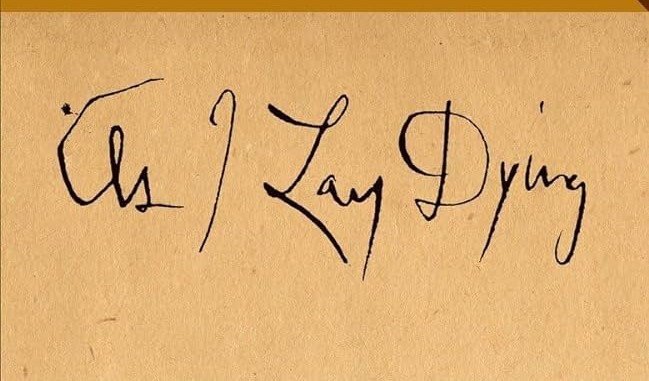 As I Lay Dying